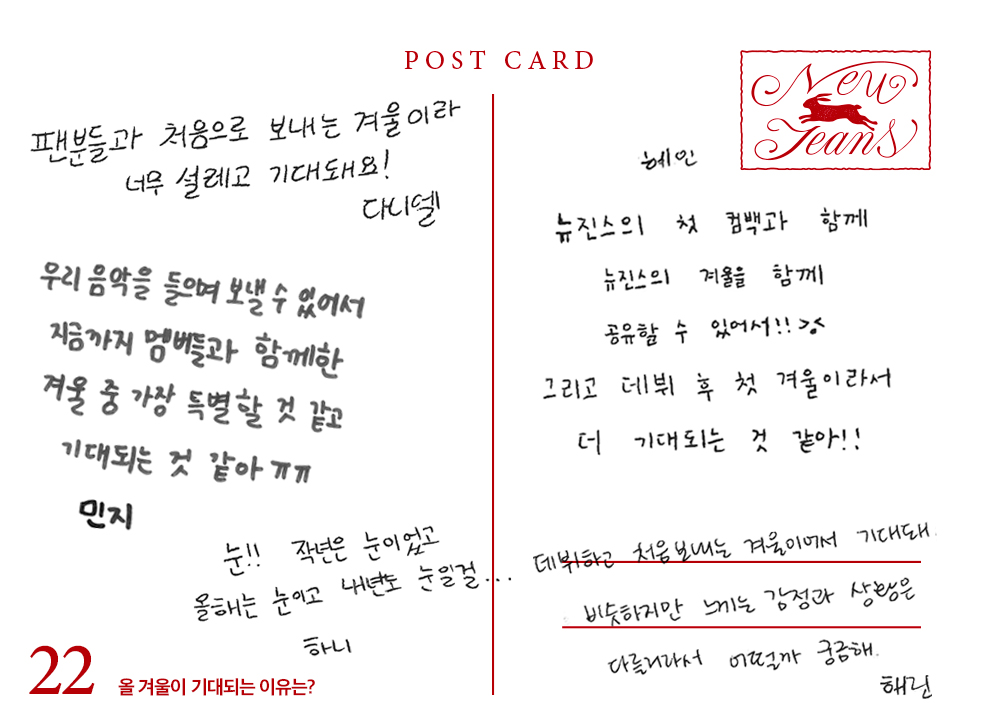 POST CARD
New
Jeans
팬분들과 처음으로 보내는 겨울이라
너무 설레고 기대돼요!
다니엘
우리 음악을 들으며 보낼 수 있어서
지금까지 멤버들과 함께한
겨울 중 가장 특별할 것 같고
기대되는 것 같아 ㅠㅠ
민지
눈!! 작년은 눈이었고
올해는 눈이고 내년도 눈일걸...
하니
22
올 겨울이 기대되는 이유는?
혜인
뉴진스의 첫 컴백과 함께
뉴진스의 겨울을 함께
공유할 수 있어서!! ><
그리고 데뷔 후 첫 겨울이라서
더 기대되는 것 같아!!
데뷔하고 처음 보내는 겨울이어서 기대돼.
비슷하지만 느끼는 감정과 상황은
다를거라서 어떨까 궁금해.
해린